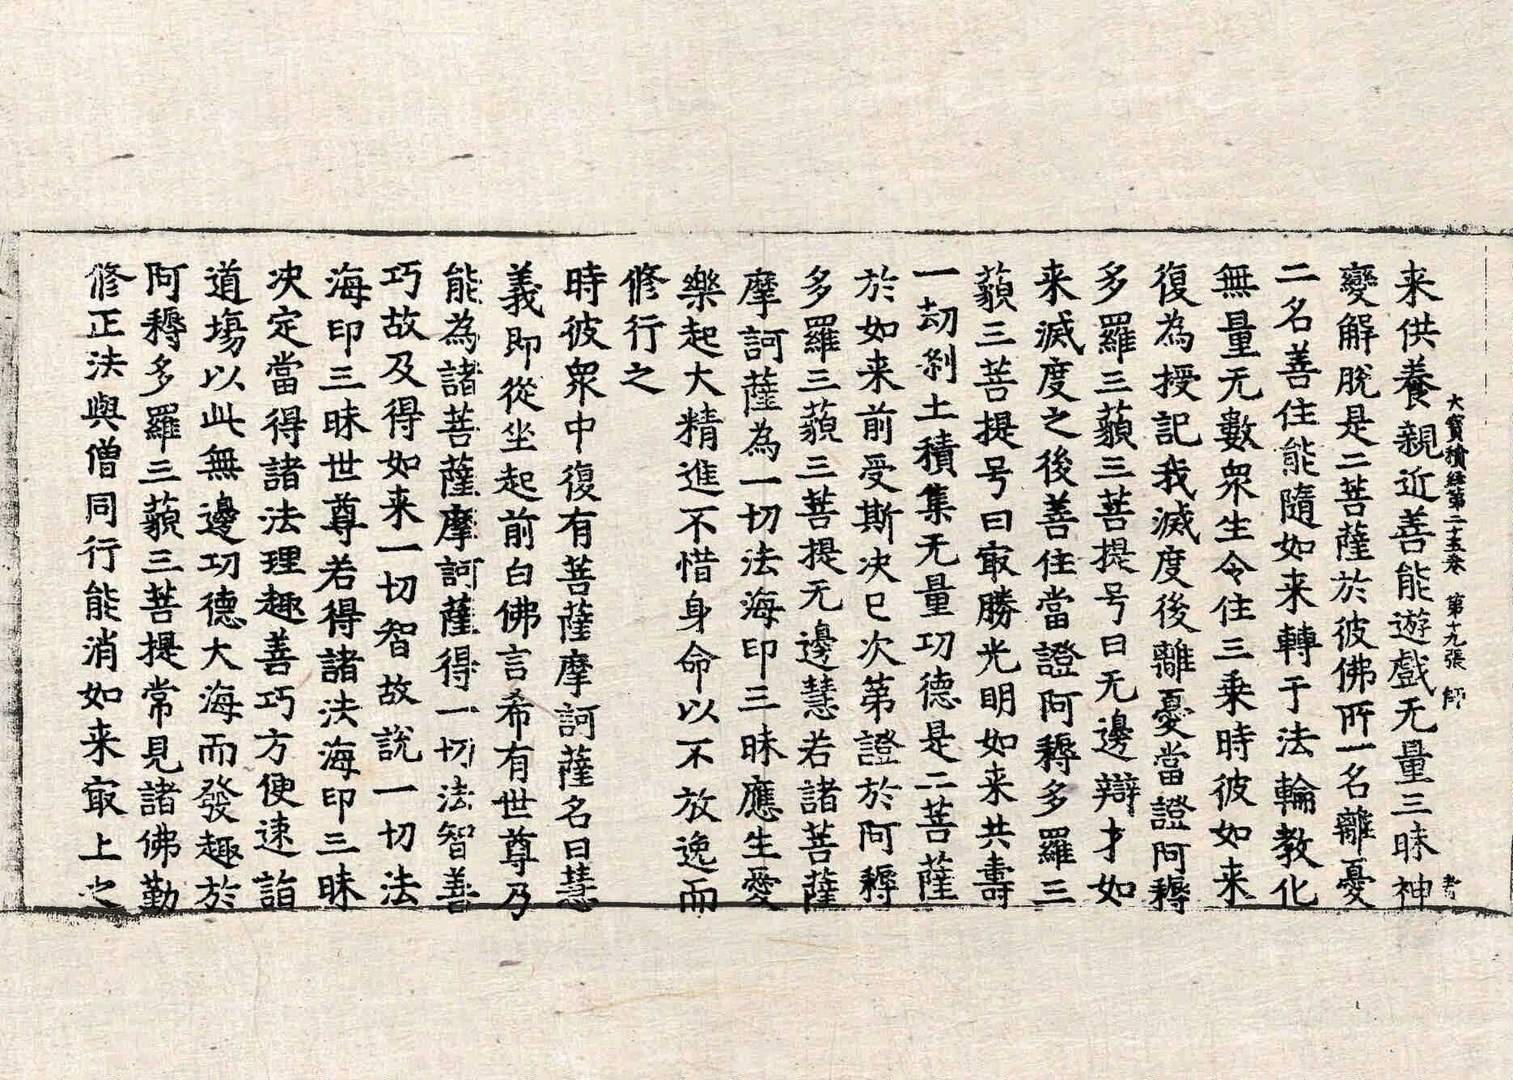 大寶積經第二十五卷 第十九張 師
来供養親近善能遊戲无量三昧神
變解脫是二菩薩於彼佛所一名離憂
二名善住能隨如来轉于法輪教化
無量无數衆生令住三乘時彼如来
復為授記我滅度後離憂當證阿耨
多羅三藐三菩提号曰无邊辯才如
来滅度之後善住當證阿耨多羅三
藐三菩提号曰㝡勝光明如来共壽
一劫刹土積集无量功德是二菩薩
於如来前受斯决已次第證於阿耨
多羅三藐三菩提无邊慧若諸菩薩
摩訶薩為一切法海印三昧應生愛
樂起大精進不惜身命以不放逸而
修行之
時彼衆中復有菩薩摩訶薩名曰慧
義即從坐起前白佛言希有世尊乃
能為諸菩薩摩訶薩得一切法智善
巧故及得如来一切智故說一切法
海印三昧世尊若得諸法海印三昧
决定當得諸法理趣善巧方便速詣
道場以此無邊功德大海而發趣於
阿耨多羅三藐三菩提常見諸佛勤
修正法與僧同行能消如来㝡上之